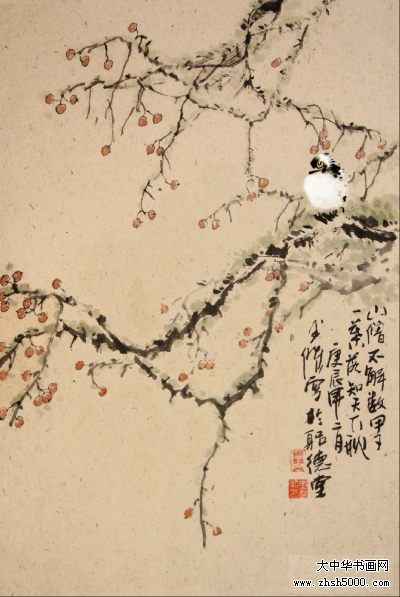 山僧不解數甲子
一葉落知天下秋
庚辰年二月
寫於德堂
大中华书画网
www.zhsh5000.com